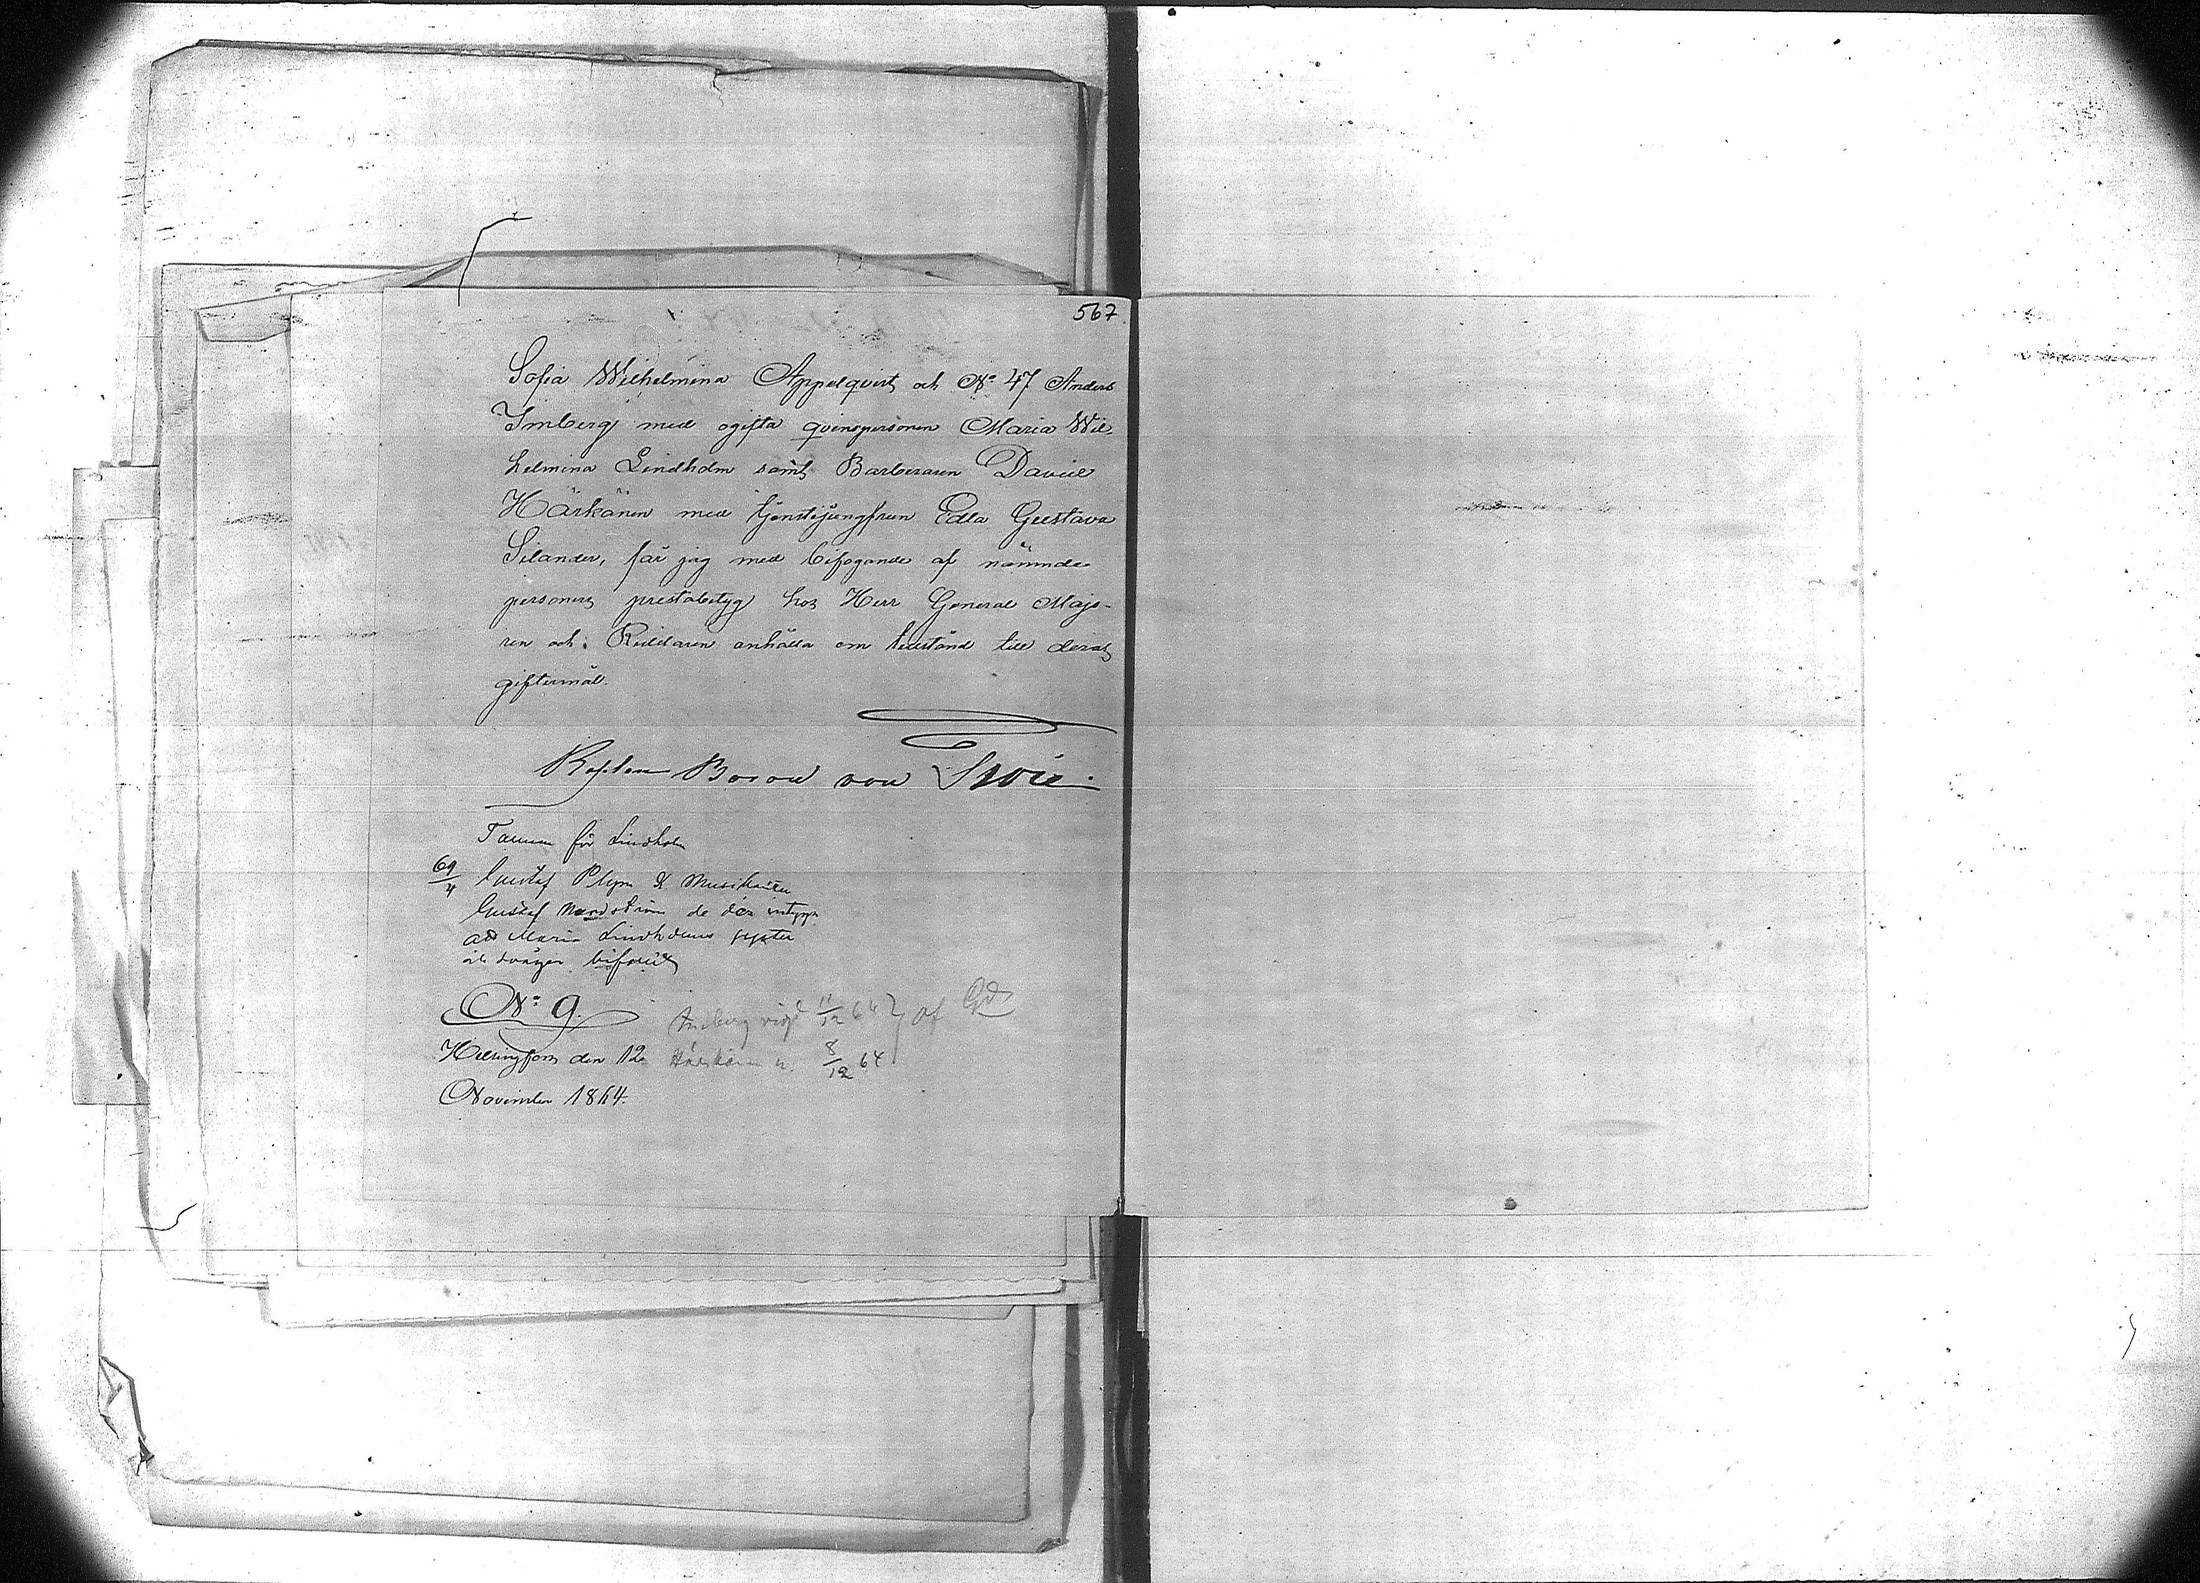 567
Sofia Wilhelmina Appelqvist och No 47 Anders
Imberg med ogifta qvinspersonen Maria Wil-
helmina Lindholm samt Barberaren David
Härkänen med tjenstejungfrun Edla Gustava
Silander, får jag med bifogande af nämnde
personers prestabetyg hos Herr General Majo-
ren och Riddaren anhålla om tillstånd till deras
giftermål.
Kapten Baron von
för Lindholm
Gustaf & Musikanten
Gustaf Nordström de der intyga
att Maria Lindholms syster
och svåger bifallit
No 9.
Imberg vigd 11/12 64 af
Helsingfors den 12 Härkänen v. 8/12 64
November 1864.